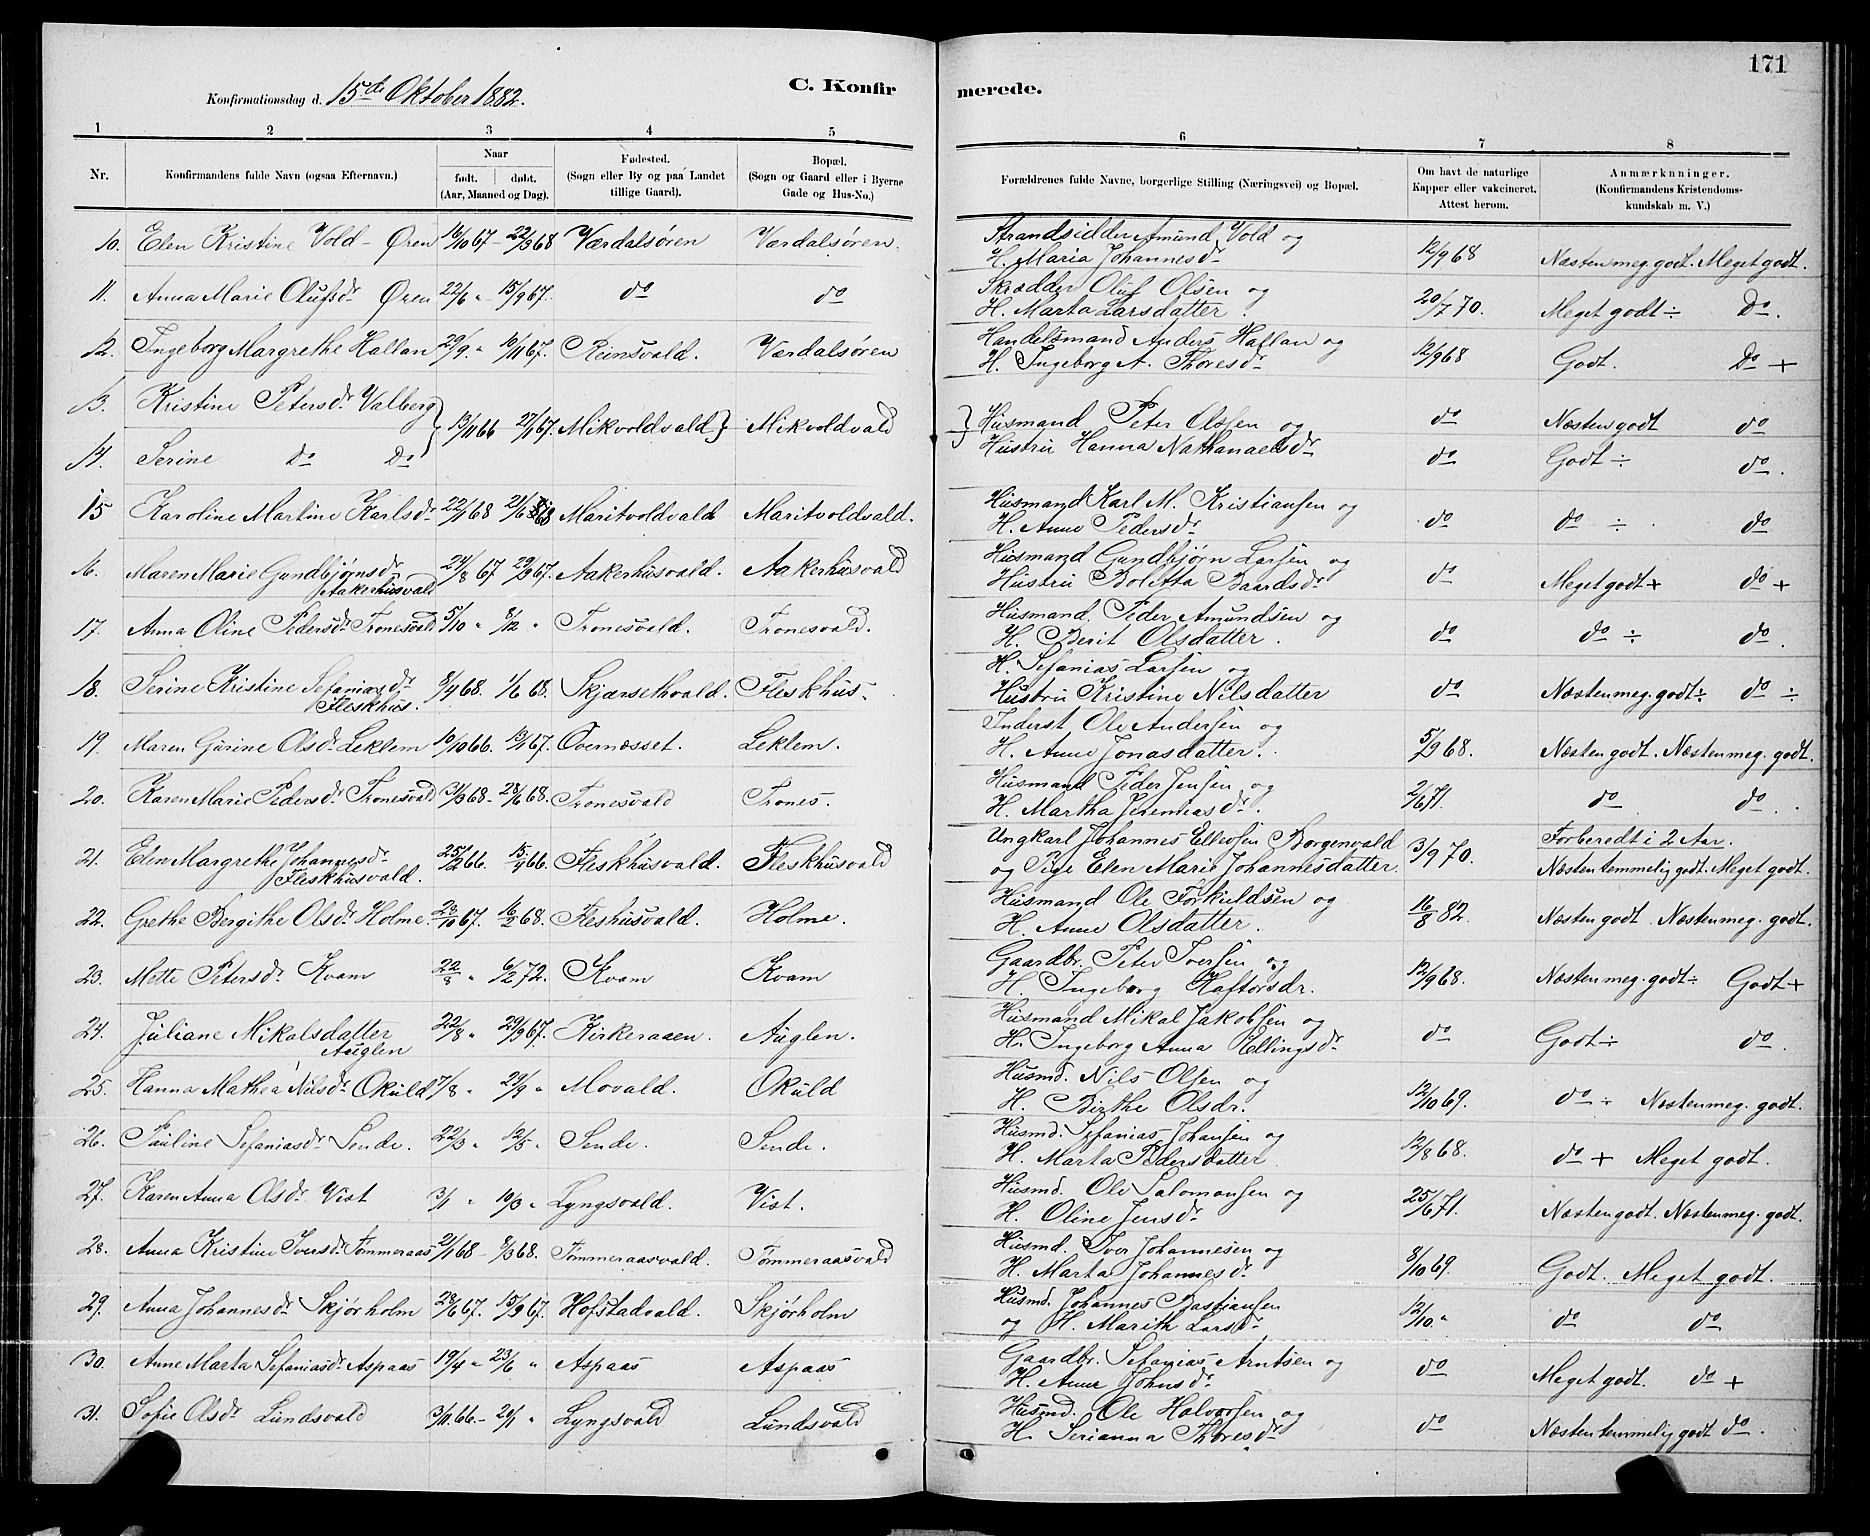 171
Konfirmationsdag d. 15de Oktober 1882.
C. Konfirmerede.
1 2 3 4 5 6 7 8
Nr. | Konfirmandens fulde Navn (ogsaa Efternavn.) | Naar født. døbt. (Aar, Maaned og Dag). | Fødested. (Sogn eller By og paa Landet tillige Gaard). | Bopæl. (Sogn og Gaard eller i Byerne Gade og Hus-No.) | Forældrenes fulde Navne, borgerlige Stilling (Næringsvei) og Bopæl. | Om havt de naturlige Kapper eller vakcineret. Attest herom. | Anmærknninger. (Konfirmandens Kristendomskundskab m. V.)
10. Elen Kristine Vold - Øren 16/10 67 - 22/3 68 Værdalsøren Værdalsøren. Strandsidder Amund Vold og
H. Maria Johannesdr 12/9 68 Næsten meg. godt. Meget godt.
11. Anna Marie Olufsdr Øren 22/6 " 15/9 67. do do Skrædder Oluf Olsen og
H. Marta Larsdatter. 20/7 70. Meget godt ÷ Do.
12. Ingeborg Margrethe Hallan 29/9 " 10/11 67. Reinsvald. Værdalsøren Handelsmand Anders Hallan og
H. Ingeborg A. Thoresdr 12/9 68 Godt. Do +
13. Kristine Petersdr Valberg 13/11 66 27/1 67. Mikvoldvald Mikvoldvald Husmand Peter Olsen og do Næsten godt do
14. Serine Do Do Hustru Hanna Nathanaelsdr do Godt ÷ do.
15 Karoline Martine Karlsdr 22/1 68 21/6 68 Maritvoldvald Maritvoldvald. Husmand Karl M. Kristiansen og
H. Anne Pedersdr do do ÷ do
16. Maren Marie Gundbjørnsdr 24/8 67 29/9 67. Aakerhusvald. Aakerhusvald Husmand Gundbjørn Larsen og
Aakerhusvald Hustru Boletta Baardsdr do Meget godt + do +
17. Anna Oline Pedersdr Tronesvald 5/10 " 8/12 " Tronesvald. Tronesvald. Husmand Peder Amundsen og
H. Berit Olsdatter. do do ÷ do.
18. Serine Kristine Sefaniasdr 8/4 68. 1/6 68. Skjørsetvald. Fleskhus. H. Sefanias Larsen og
Fleskhus. Hustru Kristine Nilsdatter do Næsten meg. godt ÷ do ÷
19. Maren Gurine Olsdr Leklem 10/10 66. 13/1 67. Overnæsset. Leklem. Inderst Ole Andersen og
H. Anne Jonasdatter. 5/9 68. Næsten godt. Næsten meg. godt.
20. Karen Marie Pedersdr Tronesvald 31/3 68 - 28/6 68. Tronesvald Trones. Husmand Peder Jensen og
H. Martha Jeremiasdr. 2/6 71. do do.
21. Elen Margrethe Johannesdr 25/2 66. 15/4 66. Fleskhusvald. Fleskhusvald Ungkarl Johannes Ellevsen Borgenvald 3/9 70. Forberedt i 2 Aar.
Fleskhusvald. og Pige Elen Marie Johannesdatter. Næsten temmelig godt. Meget godt.
22. Grethe Bergithe Olsdr Holme. 23/10 67. 16/2 68. Fleshusvald. Holme. Husmand Ole Torkildsen og
H. Anne Olsdatter. 16/8 82. Næsten godt. Næsten meg. godt.
23. Mette Petersdr Kvam 22/8 " 6/2 72. Kvam Kvam Gaardbr. Peter Iversen og
H. Ingeborg Haftorsdr. 12/9 68. Næsten meg. godt ÷ Godt +
24. Juliane Mikalsdatter 22/8 " 29/9 67. Kirkeraaen. Auglen. Husmand Mikal Jakobsen og
Auglen H. Ingeborg Anna Ellingsdr do Godt ÷ do.
25. Hanna Mathea Nilsdr Okuld 7/8 " 29/9 " Movald. Okuld Husmd. Nils Olsen og
H. Birthe Olsdr. 12/10 69. do ÷ Næsten meg. godt.
26. Pauline Sefaniasdr Sende. 22/3 " 12/5 " Sende. Sende. Husmd. Sefanias Johansen og
H. Marta Pedersdatter 12/8 68. do + Meget godt.
27. Karen Anna Olsdr Vist 3/1 " 10/3 " Lyngsvald. Vist. Husmd. Ole Salomonsen og
H. Oline Jensdr 25/6 71. Næsten godt. Næsten meg. godt.
28. Anna Kristine Iversdr Tømmeraas 21/1 68 - 8/3 68. Tømmeraasvald. Tømmeraasvald Husmd. Iver Johannesen og
H. Marta Johannesdr 8/10 69. Godt. Meget godt.
29. Anna Johannesdr Skjørholm 28/6 67. 15/9 67. Hofstadvald. Skjørholm Husmd. Johannes Bastiansen
og H. Marith Larsdr 12/10 " do do
30. Anne Marta Sefaniasdr Aspaas 19/4 " 23/6 " Aspaas Aspaas Gaardbr. Sefanias Arntsen og
H. Anne Johnsdr do Meget godt. do +
31. Sofie Olsdr Lundsvald 3/11 66. - 20/1 " Lyngsvald Lundsvald Husmd. Ole Halvorsen og
H. Serianna Thoresdr do Næsten temmelig godt do.